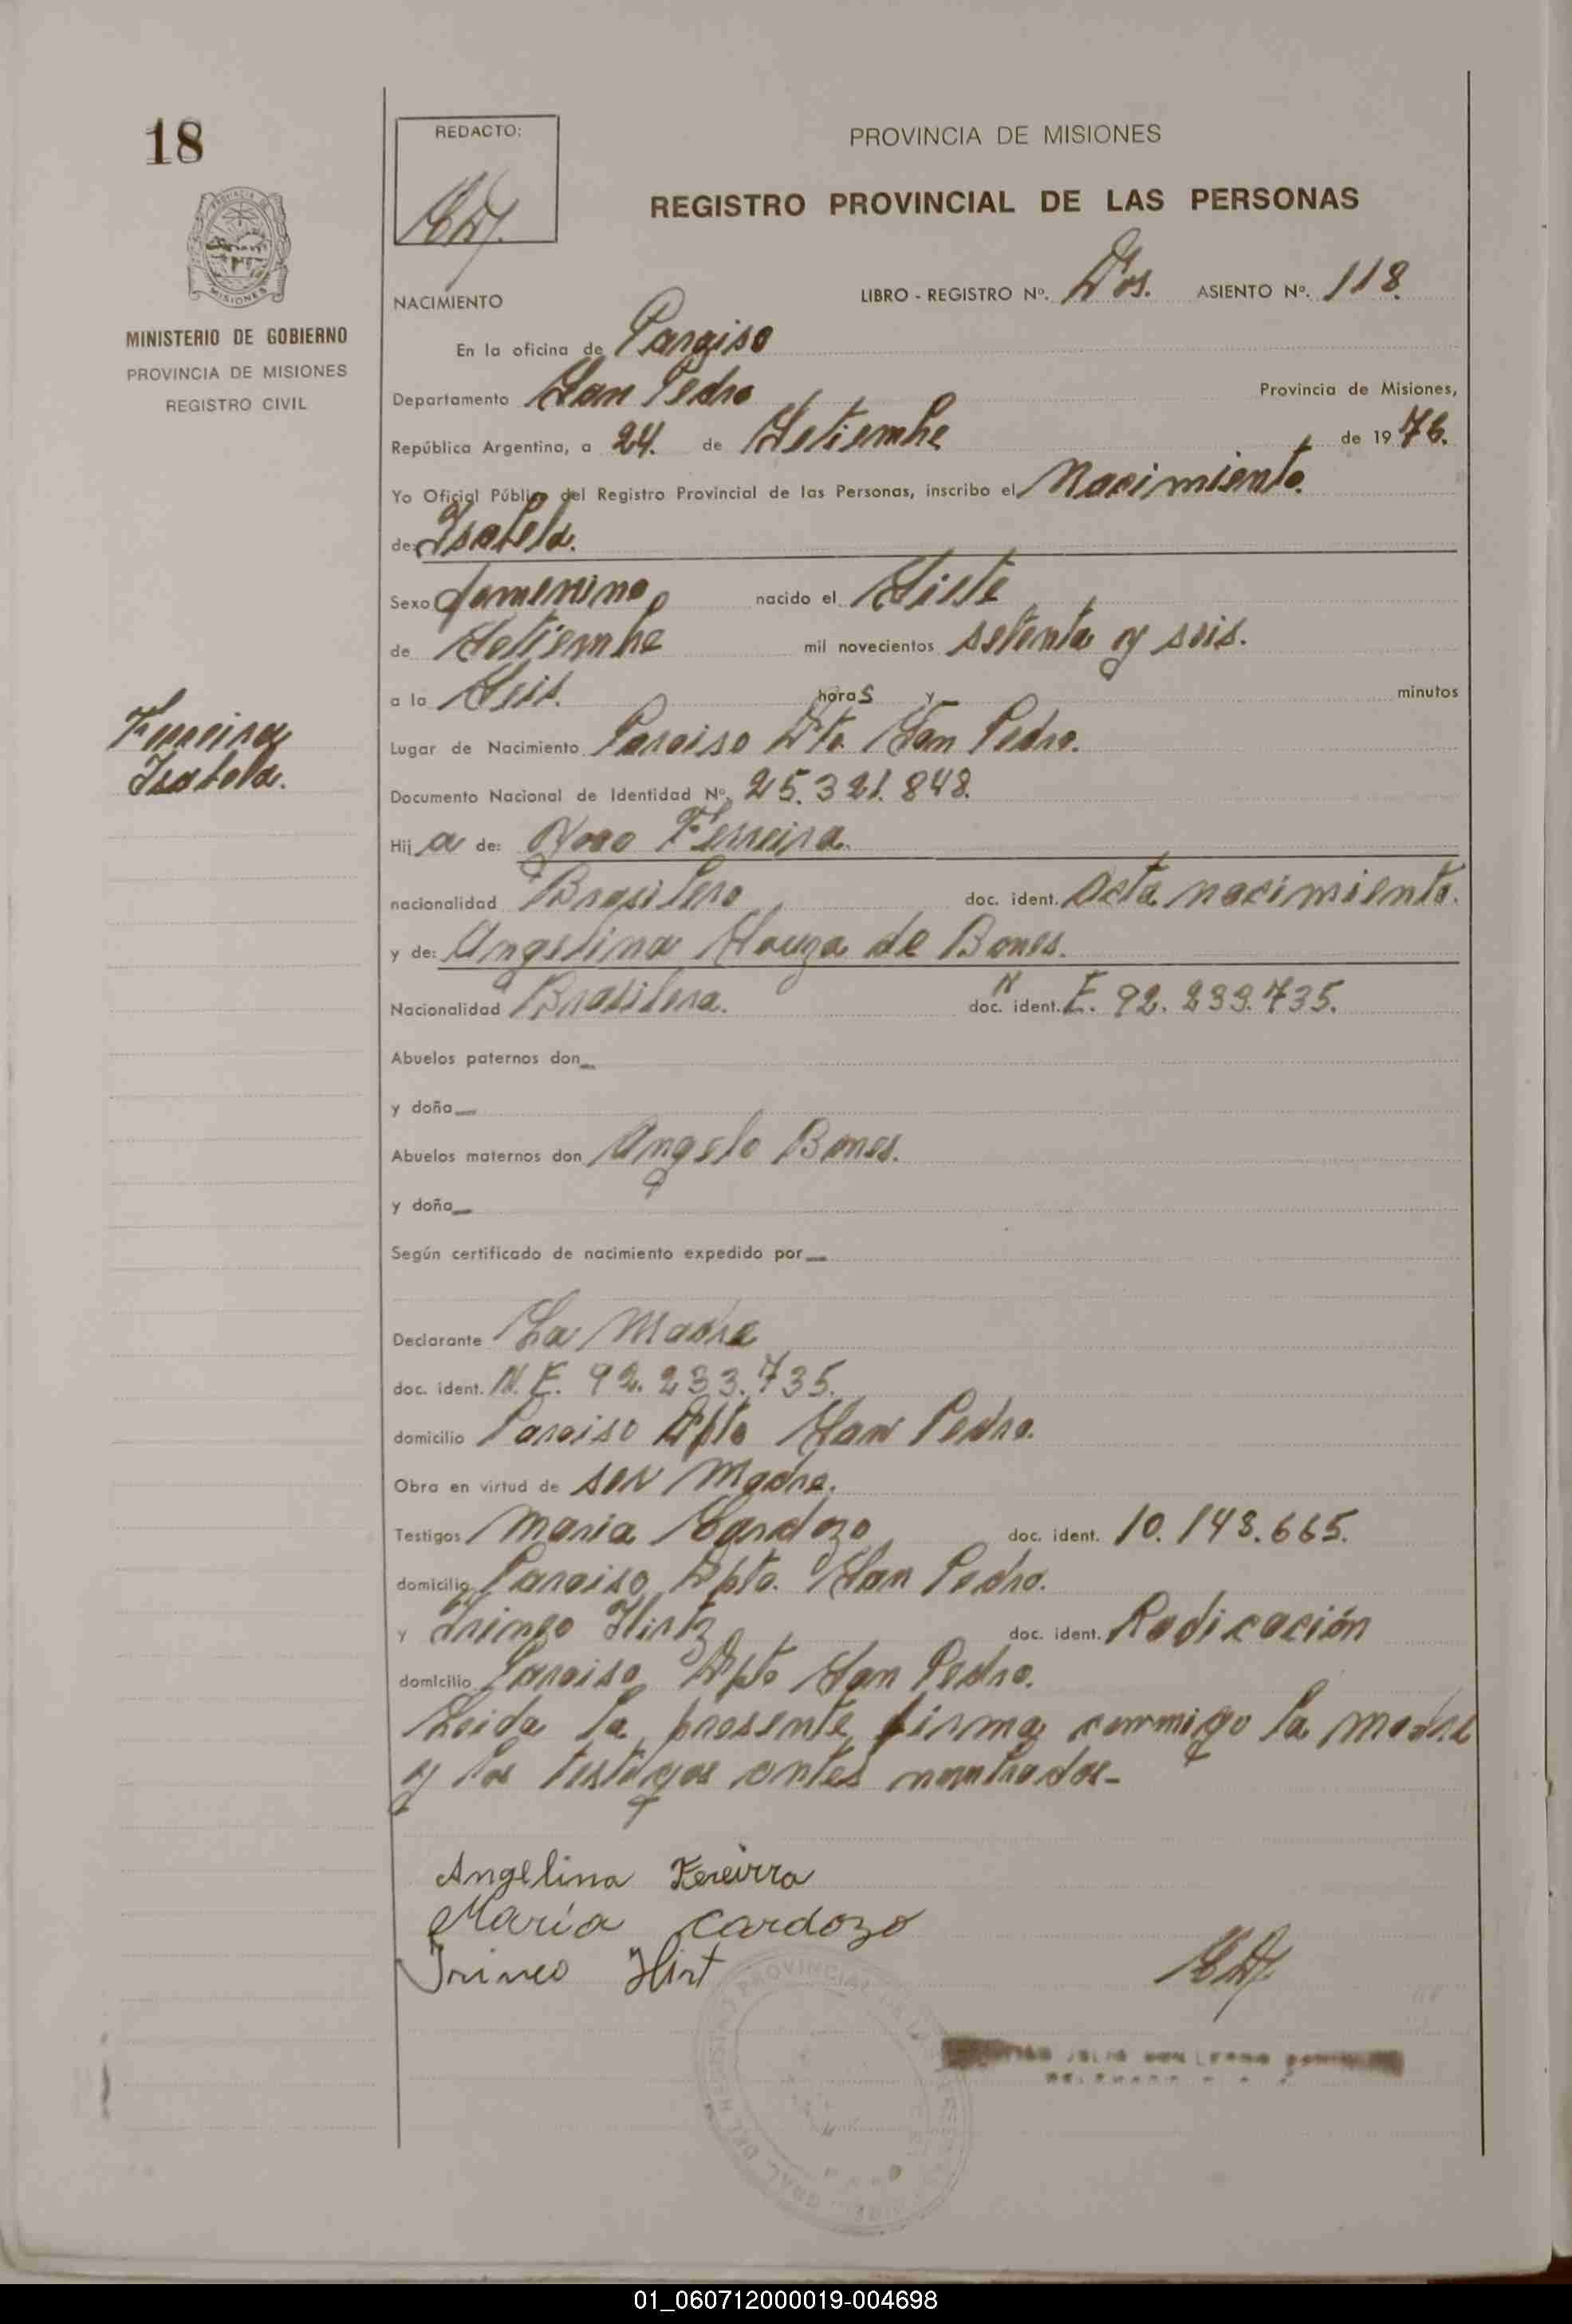 18
MISIONES
MINISTERIO DE GOBIERNO
PROVINCIA DE MISIONES
REGISTRO CIVIL
Ferreira
Isabela.
REDACTO:
PROVINCIA DE MISIONES
REGISTRO PROVINCIAL DE LAS PERSONAS
NACIMIENTO
LIBRO - REGISTRO Nº. Dos. ASIENTO Nº. 118.
En la oficina de Paraiso
Departamento San Pedro Provincia de Misiones,
República Argentina, a 24. de Setiembre de 1976.
Yo Oficial Público del Registro Provincial de las Personas, inscribo el Nacimiento.
de: Isabela.
Sexo femenino nacido el Siete
de Setiembre mil novecientos setenta y seis.
a la Seis. horas y minutos
Lugar de Nacimiento Paraiso Dto. San Pedro.
Documento Nacional de Identidad Nº. 25.321.848.
Hija de: Joao Ferreira.
nacionalidad Brasilero doc. ident. Acta nacimiento.
y de: Angelina Souza de Bones.
Nacionalidad Brasilera. doc. ident. N E. 92.233.735.
Abuelos paternos don
y doña
Abuelos maternos don Angelo Bones.
y doña
Según certificado de nacimiento expedido por
Declarante La Madre
doc. ident. N.E. 92.233.735.
domicilio Paraiso Dpto San Pedro.
Obra en virtud de ser Madre.
Testigos Maria Cardozo doc. ident. 10.143.665.
domicilio Paraiso Dpto. San Pedro.
y Irineo Hirtz doc. ident. Radicación
domicilio Paraiso Dpto San Pedro.
Leida la presente firma conmigo la madre
y los testigos antes nombrados-
Angelina Fereirra
María Cardozo
Irineo Hirt
01_060712000019-004698